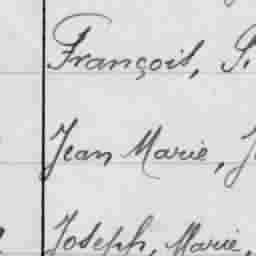 François, S.
Jean Marie, J
Joseph, Marie,